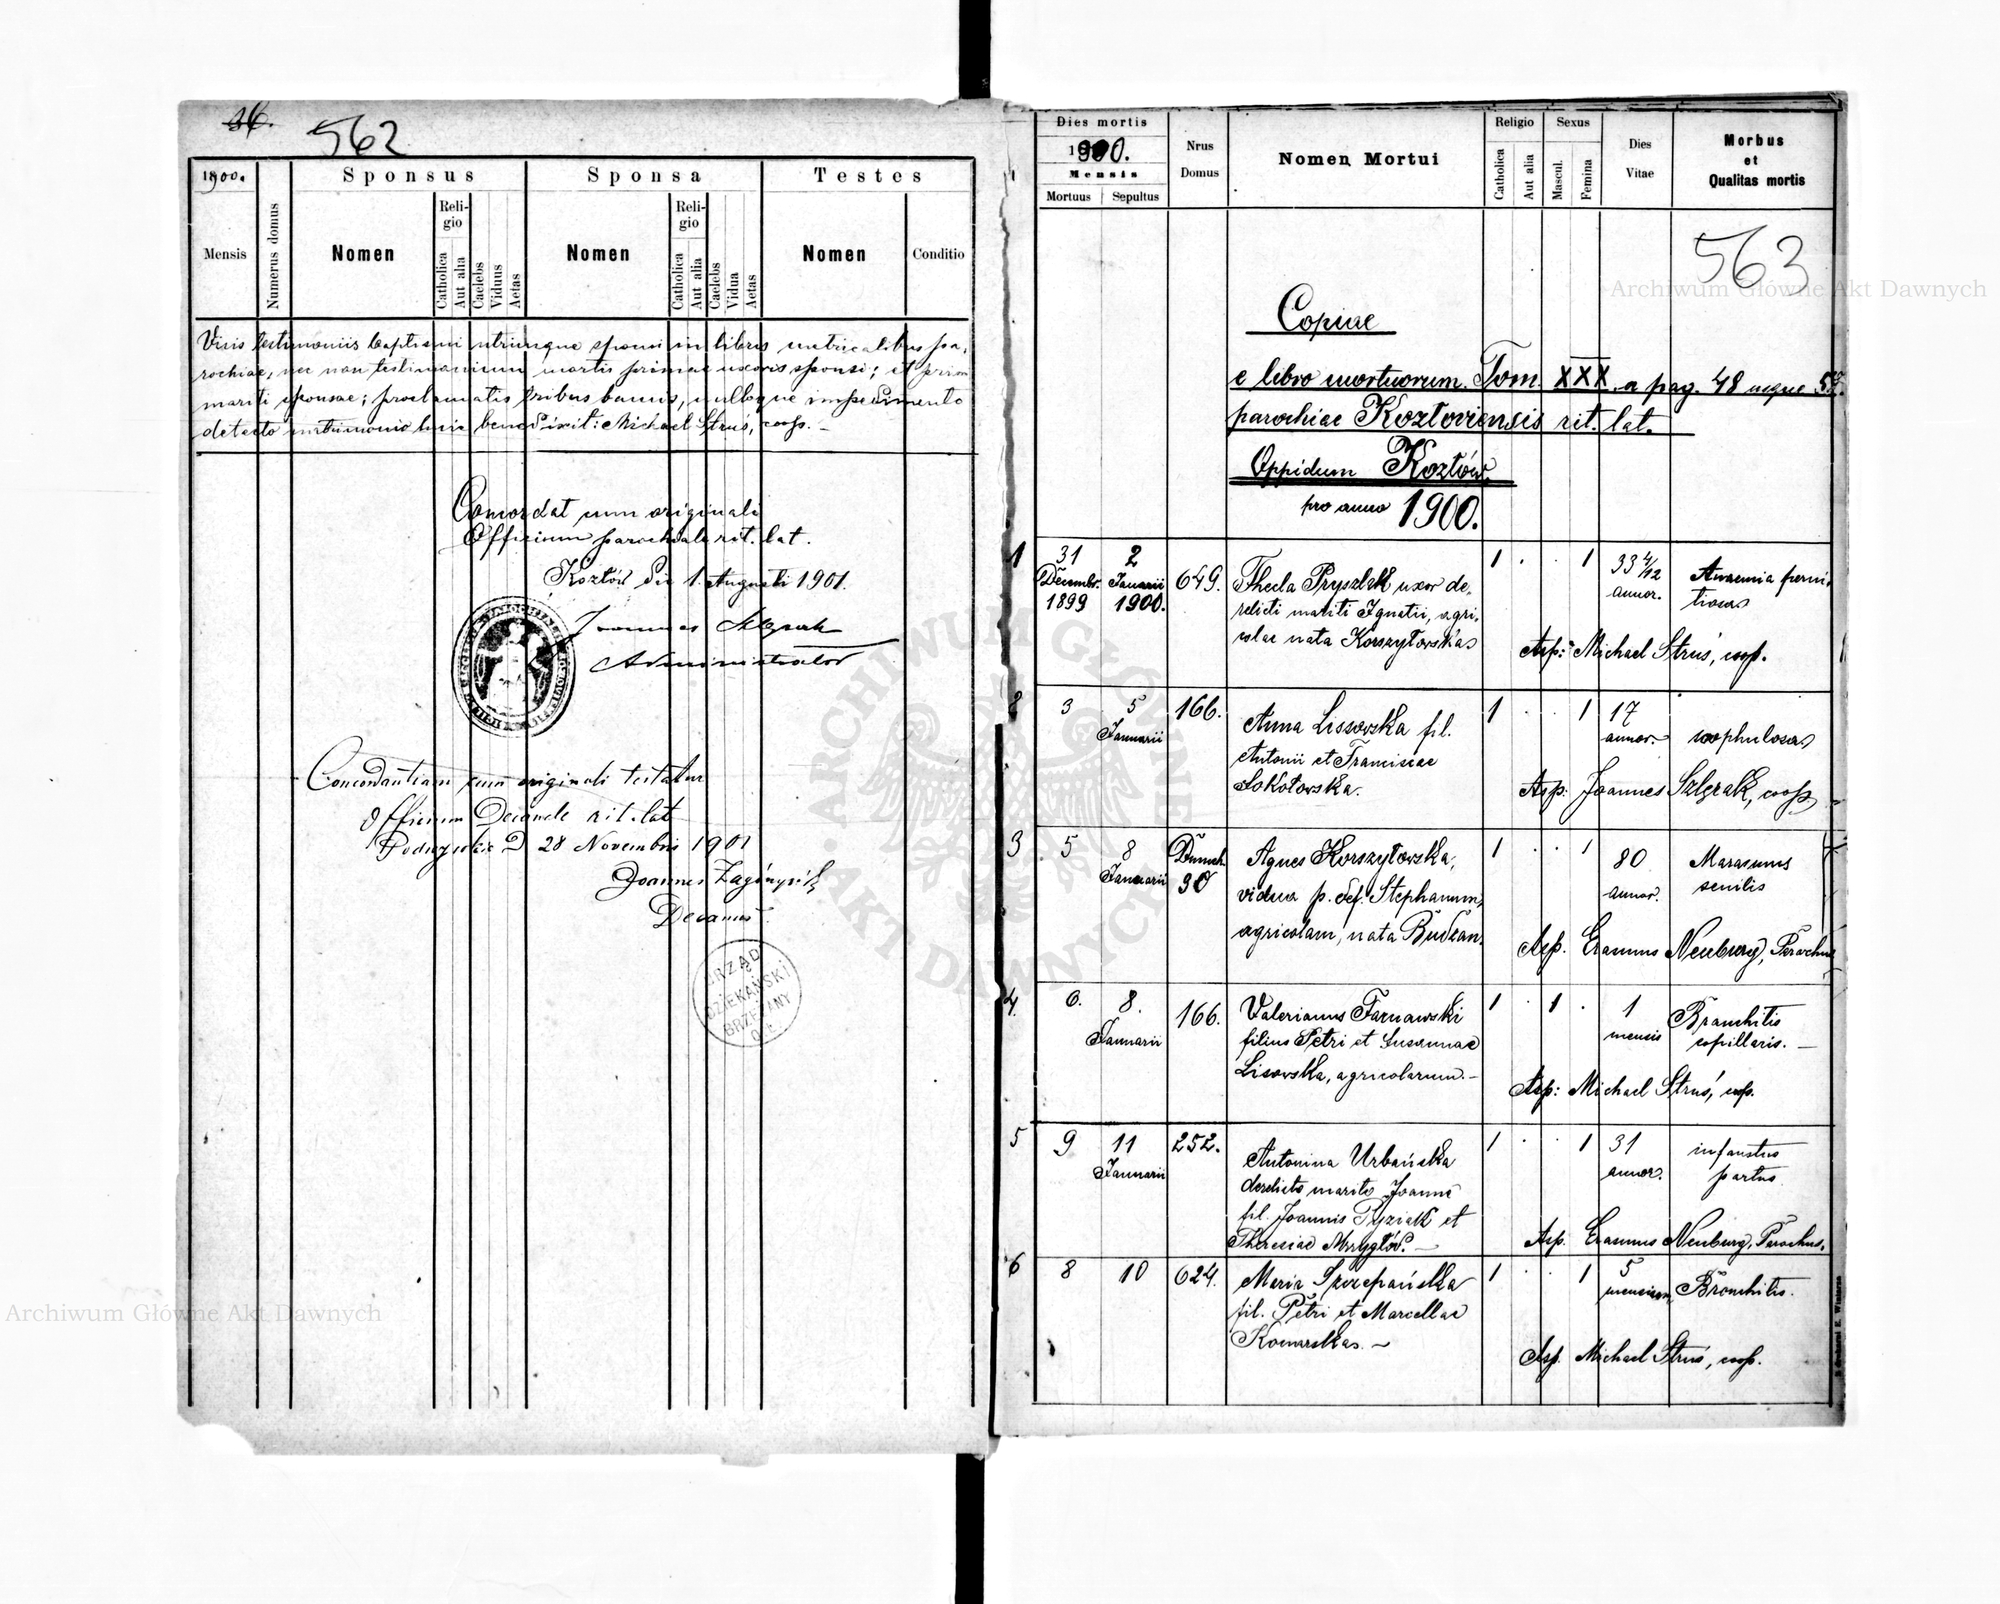 36.
562
1900.
Sponsus
Sponsa
Testes
Mensis
Numerus domus
Nomen
Religio
Catholica
Aut alia
Caelebs
Viduus
Aetas
Nomen
Religio
Catholica
Aut alia
Caelebs
Vidua
Aetas
Nomen
Conditio
Visis testimoniis baptismi utriusque sponsi in libris metricalibus pa-
rochiae, nec non testimonium mortis primae uxoris sponsi; et primi
mariti sponsae; proclamatis tribus bannis, nulloque impedimento
detecto matrimonio huic benedixit: Michael Struś, coop. —
Concordat cum originali
Officium parochiale rit. lat.
Kozłów die 1. Augusti 1901.
Joannes
Administrator
Concordantiam cum originali testatur
Officium Decanale rit. lat
28 Novembris 1901
Joannes
Decanus
URZĄD
DZIEKAŃSKI
BRZEŻANY
Dies mortis
1900.
Mensis
Mortuus
Sepultus
Nrus
Domus
Nomen Mortui
Religio
Catholica
Aut alia
Sexus
Mascul.
Femina
Dies
Vitae
Morbus
et
Qualitas mortis
563
Copiae
e libro mortuorum. Tom. XXX. a pag. 48 usque 57.
parochiae Kozloviensis rit. lat.
Oppidum Kozłów.
pro anno 1900.
1
31
Decembr.
1899
2
Januarii
1900.
649.
Thecla Pryszlak uxor de-
relicti mariti Ignatii, agri-
colae nata Korszyłowska
1 . . 1
33 4/12
annor.
Anaemia perni-
tiosa
Asp: Michael Struś, coop.
2
3
5
Januarii
166.
Anna Lissowska fil.
Antonii et Franciscae
Sokołowska.
1 . . 1
17
annor.
scophulosa
Asp: Joannes Szlęzak, coop
3
5
8
Januarii
90
Agnes Korszyłowska,
vidua p. def. Stephanum,
agricolam, nata Budzan.
1 . . 1
80
annor.
Marasmus
senilis
Asp. Erasmus Neuburg, Parochus
4.
6.
8.
Januarii
166.
Valerianus Tarnawski
filius Petri et Susannae
Lisowska, agricolarum. —
1 . 1 .
1
mensis
Bronchitis
capillaris. —
Asp: Michael Struś, coop.
5
9
11
Januarii
252.
Antonina Urbańska
derelicto marito Joanne
fil. Joannis Tyziak et
Theresiae Mrzygłód. —
1 . . 1
31
annor.
infaustus
partus
Asp. Erasmus Neuburg, Parochus.
6
8
10
624.
Maria Szczepańska
fil. Petri et Marcellae
Komarska. —
1 . . 1
5
mensium
Bronchitis.
Asp. Michael Struś, coop.
Archiwum Główne Akt Dawnych
Archiwum Główne Akt Dawnych
ARCHIWUM GŁÓWNE
AKT DAWNYCH